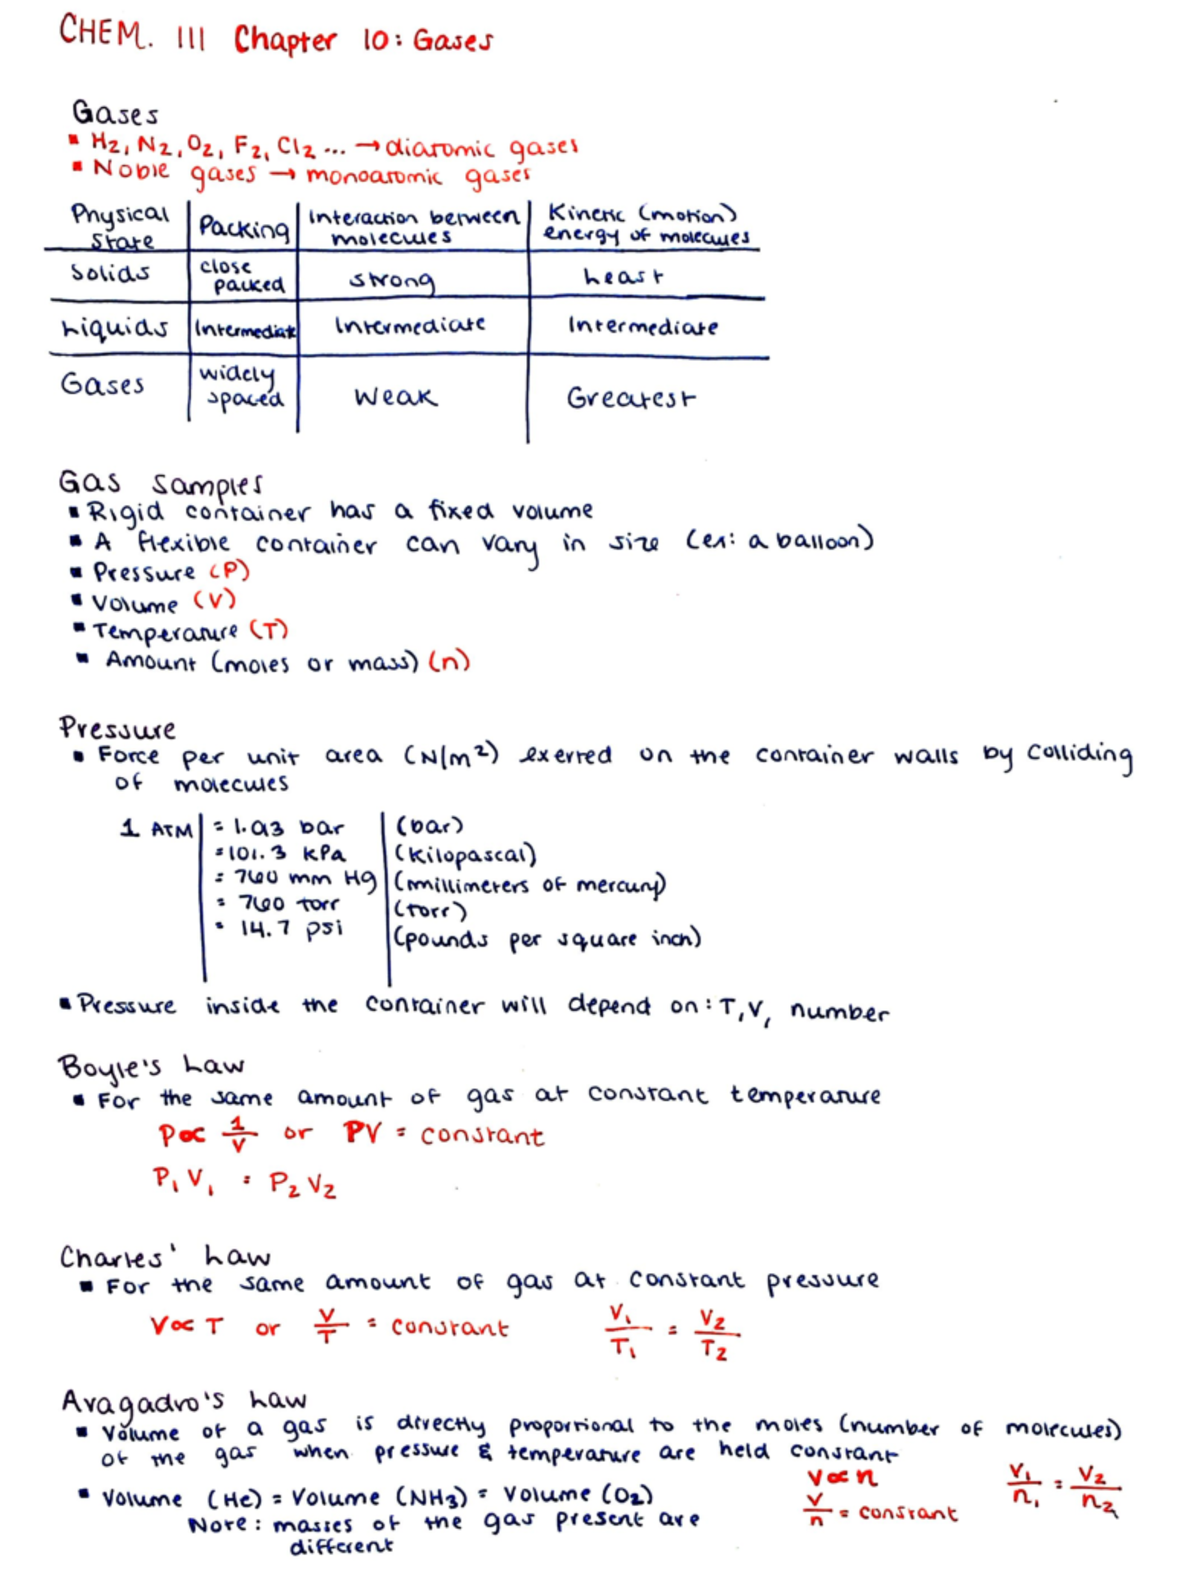 CHEM. 111 Chapter 10: Gases
Gases
▪ H2, N2, O2, F2, Cl2 ... → diatomic gases
▪ Noble gases → monoatomic gases
Physical State | Packing | Interaction between molecules | Kinetic (motion) energy of molecules
Solids | close packed | strong | Least
Liquids | Intermediate | Intermediate | Intermediate
Gases | widely spaced | Weak | Greatest
Gas Samples
▪ Rigid container has a fixed volume
▪ A flexible container can vary in size (ex: a balloon)
▪ Pressure (P)
▪ Volume (V)
▪ Temperature (T)
▪ Amount (moles or mass) (n)
Pressure
▪ Force per unit area (N/m²) exerted on the container walls by colliding
of molecules
1 ATM | = 1.013 bar | (bar)
= 101.3 kPa | (kilopascal)
= 760 mm Hg | (millimeters of mercury)
= 760 torr | (torr)
= 14.7 psi | (pounds per square inch)
▪ Pressure inside the container will depend on: T, V, number
Boyle's Law
▪ For the same amount of gas at constant temperature
P ∝ 1/V or PV = constant
P₁V₁ = P₂V₂
Charles' Law
▪ For the same amount of gas at constant pressure
V ∝ T or V/T = constant V₁/T₁ = V₂/T₂
Avagadro's Law
▪ Volume of a gas is directly proportional to the moles (number of molecules)
of the gas when pressure & temperature are held constant
V ∝ n
▪ Volume (He) = Volume (NH3) = Volume (O2) V/n = constant V₁/n₁ = V₂/n₂
Note: masses of the gas present are
different